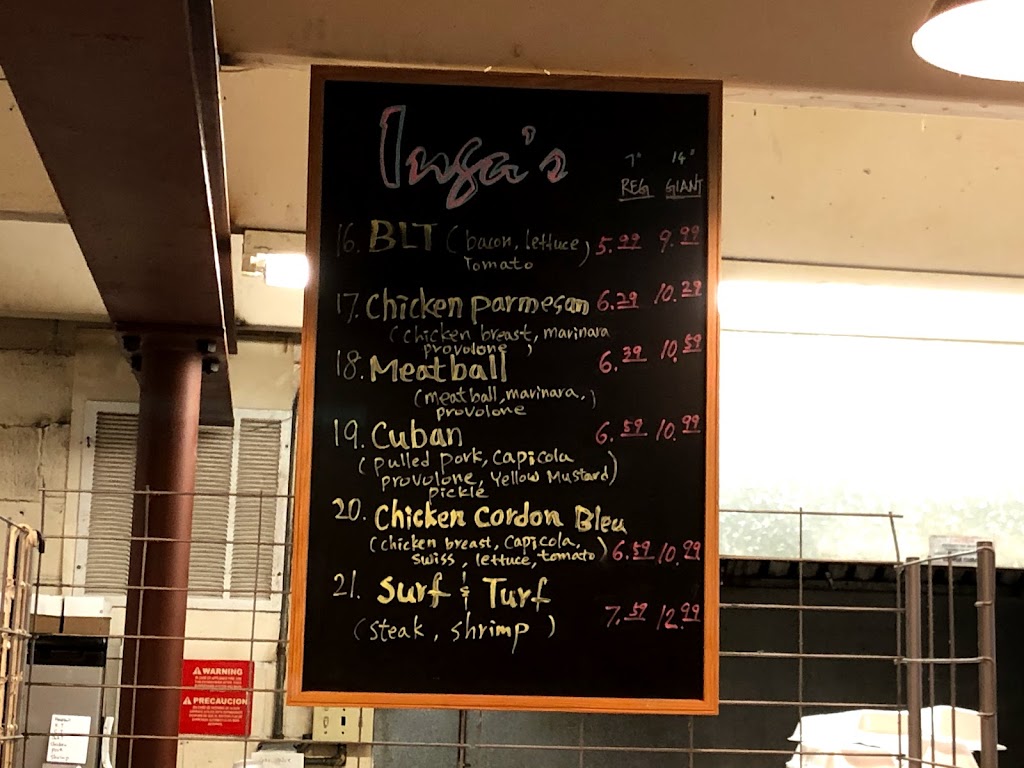 Inga's
7" 14"
REG GIANT
16. BLT (bacon, lettuce) 5.99 9.99
Tomato
17. Chicken parmesan 6.29 10.29
(chicken breast, marinara
provolone )
18. Meatball 6.39 10.59
(meatball, marinara, )
provolone
19. Cuban 6.59 10.99
(pulled pork, capicola
provolone, Yellow Mustard)
pickle
20. Chicken Cordon Bleu
(chicken breast, capicola,
swiss, lettuce, tomato) 6.59 10.99
21. Surf & Turf 7.59 12.99
(steak, shrimp )
WARNING
PRECAUCION